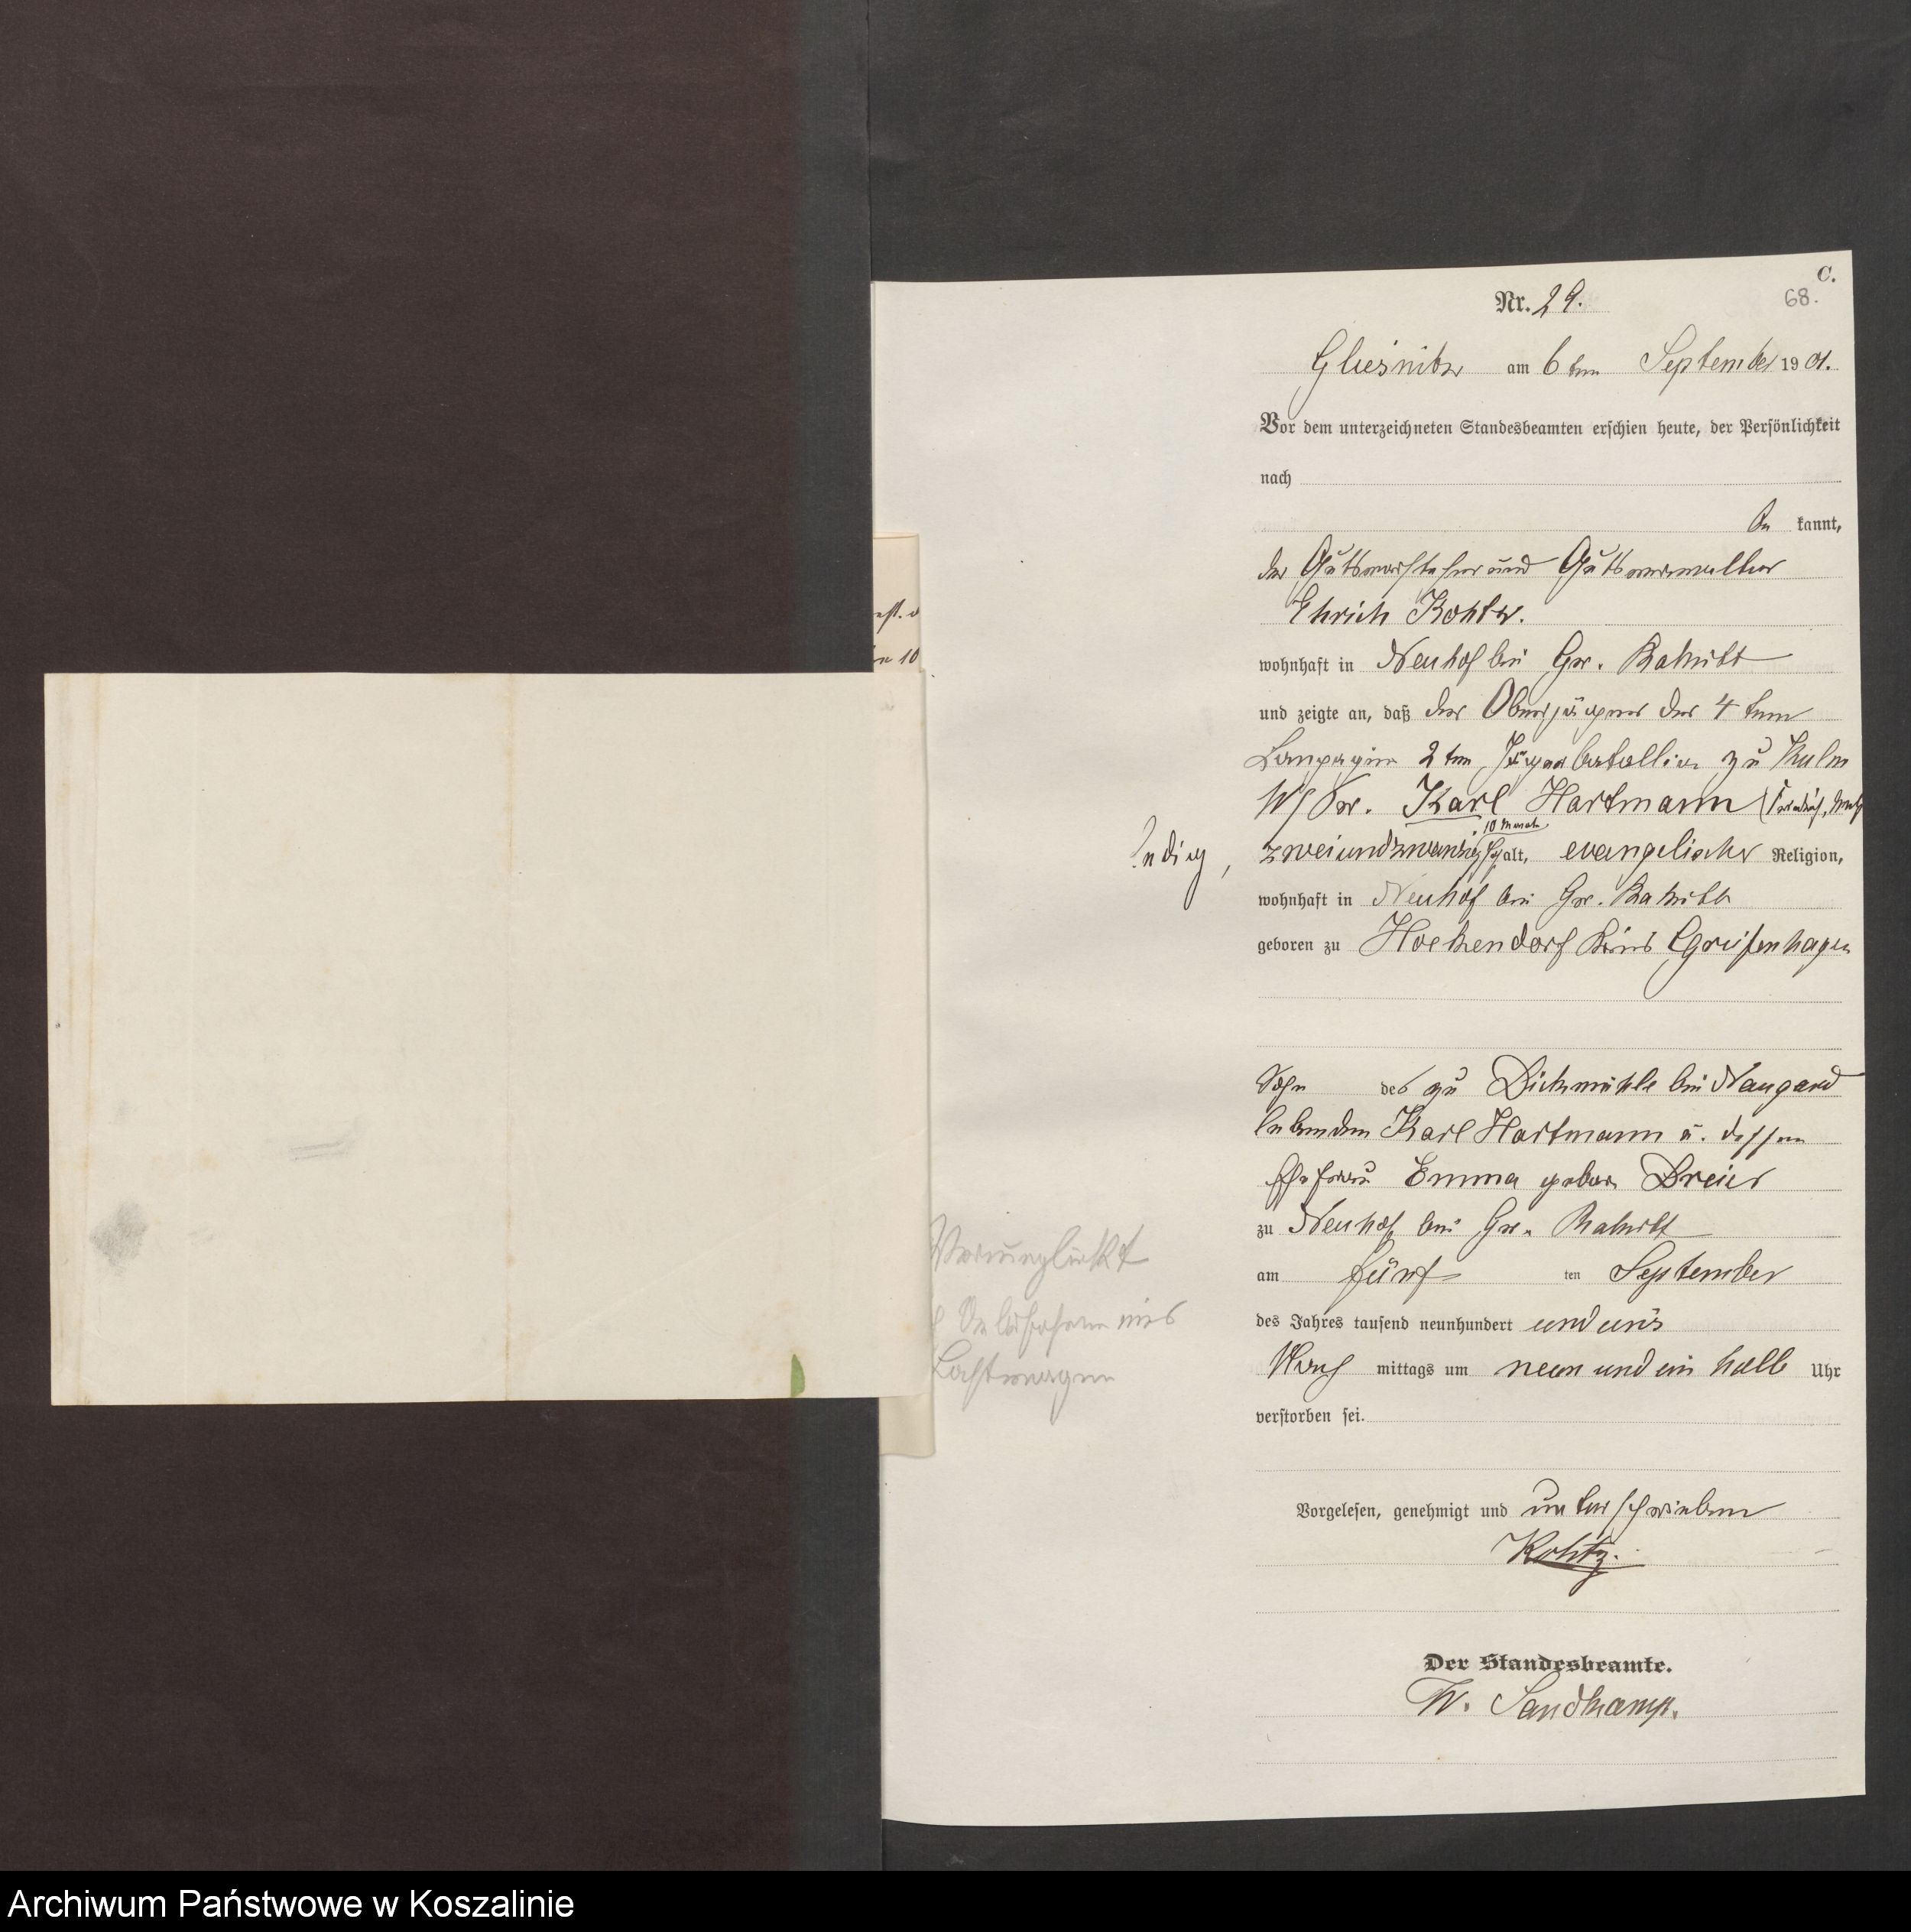 C.
68.
Nr. 29.
Gliesnitz am 6ten September 1901.
Vor dem unterzeichneten Standesbeamten erschien heute, der Persönlichkeit
nach
be kannt,
der Gutsvorsteher und Gutsverwalter
Ehrich
wohnhaft in Neuhof bei Gr.
und zeigte an, daß der Oberjäger der 4ten
2ten zu Kulm
W/Pr. Karl Hartmann
ledig,
10 Monate
zweiundzwanzig J alt, evangelischer Religion,
wohnhaft in Neuhof bei Gr.
geboren zu Hoekendorf Kreis Greifenhagen
Sohn des zu Dickmühle bei Naugard
lebenden Karl Hartmann u. dessen
Ehefrau Emma gebor. Dreier
zu Neuhof bei Gr.
am fünf ten September
des Jahres tausend neunhundert und eins
Vor mittags um neun und ein halb Uhr
verstorben sei.
Verunglückt
Lastwagen
Vorgelesen, genehmigt und unterschrieben
Der Standesbeamte.
W. Sandkamp.
Archiwum Państwowe w Koszalinie